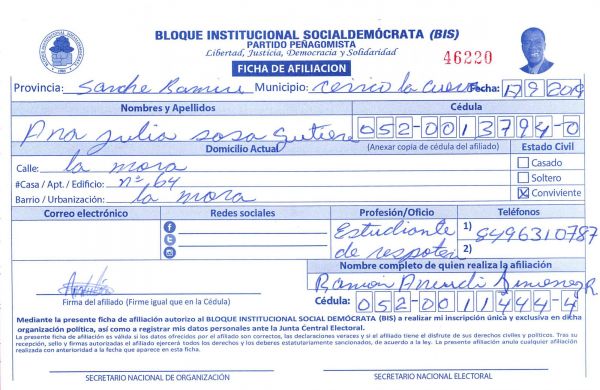 BLOQUE INSTITUCIONAL SOCIALDEMÓCRATA (BIS)
PARTIDO PEÑAGOMISTA
Libertad, Justicia, Democracia y Solidaridad
46220
FICHA DE AFILIACION
Provincia: Sanche Ramire Municipio: la Cueva Fecha: 17/9/2019
Nombres y Apellidos Cédula
Ana Julia sosa Gutiere 052-0013794-0
Domicilio Actual (Anexar copia de cédula del afiliado) Estado Civil
Calle: la mora Casado
#Casa / Apt. / Edificio: nº 64 Soltero
Barrio / Urbanización: la mora X Conviviente
Correo electrónico Redes sociales Profesión/Oficio Teléfonos
Estudiante 1) 8496310787
de 2)
Nombre completo de quien realiza la afiliación
Ramon
Firma del afiliado (Firme igual que en la Cédula) Cédula: 052-0011444-4
Mediante la presente ficha de afiliación autorizo al BLOQUE INSTITUCIONAL SOCIAL DEMÓCRATA (BIS) a realizar mi inscripción única y exclusiva en dicha
organización política, así como a registrar mis datos personales ante la Junta Central Electoral.
La presente ficha de afiliación es válida si los datos ofrecidos por el afiliado son correctos, las declaraciones veraces y si el afiliado tiene el disfrute de sus derechos civiles y políticos. Tras su
recepción, sello y firmas autorizadas el afiliado ejercerá todos los derechos y los deberes estatutariamente sancionados, de acuerdo a la ley. La presente afiliación anula cualquier afiliación
realizada con anterioridad a la feche que aparece en esta ficha.
SECRETARIO NACIONAL DE ORGANIZACIÓN SECRETARIO NACIONAL ELECTORAL